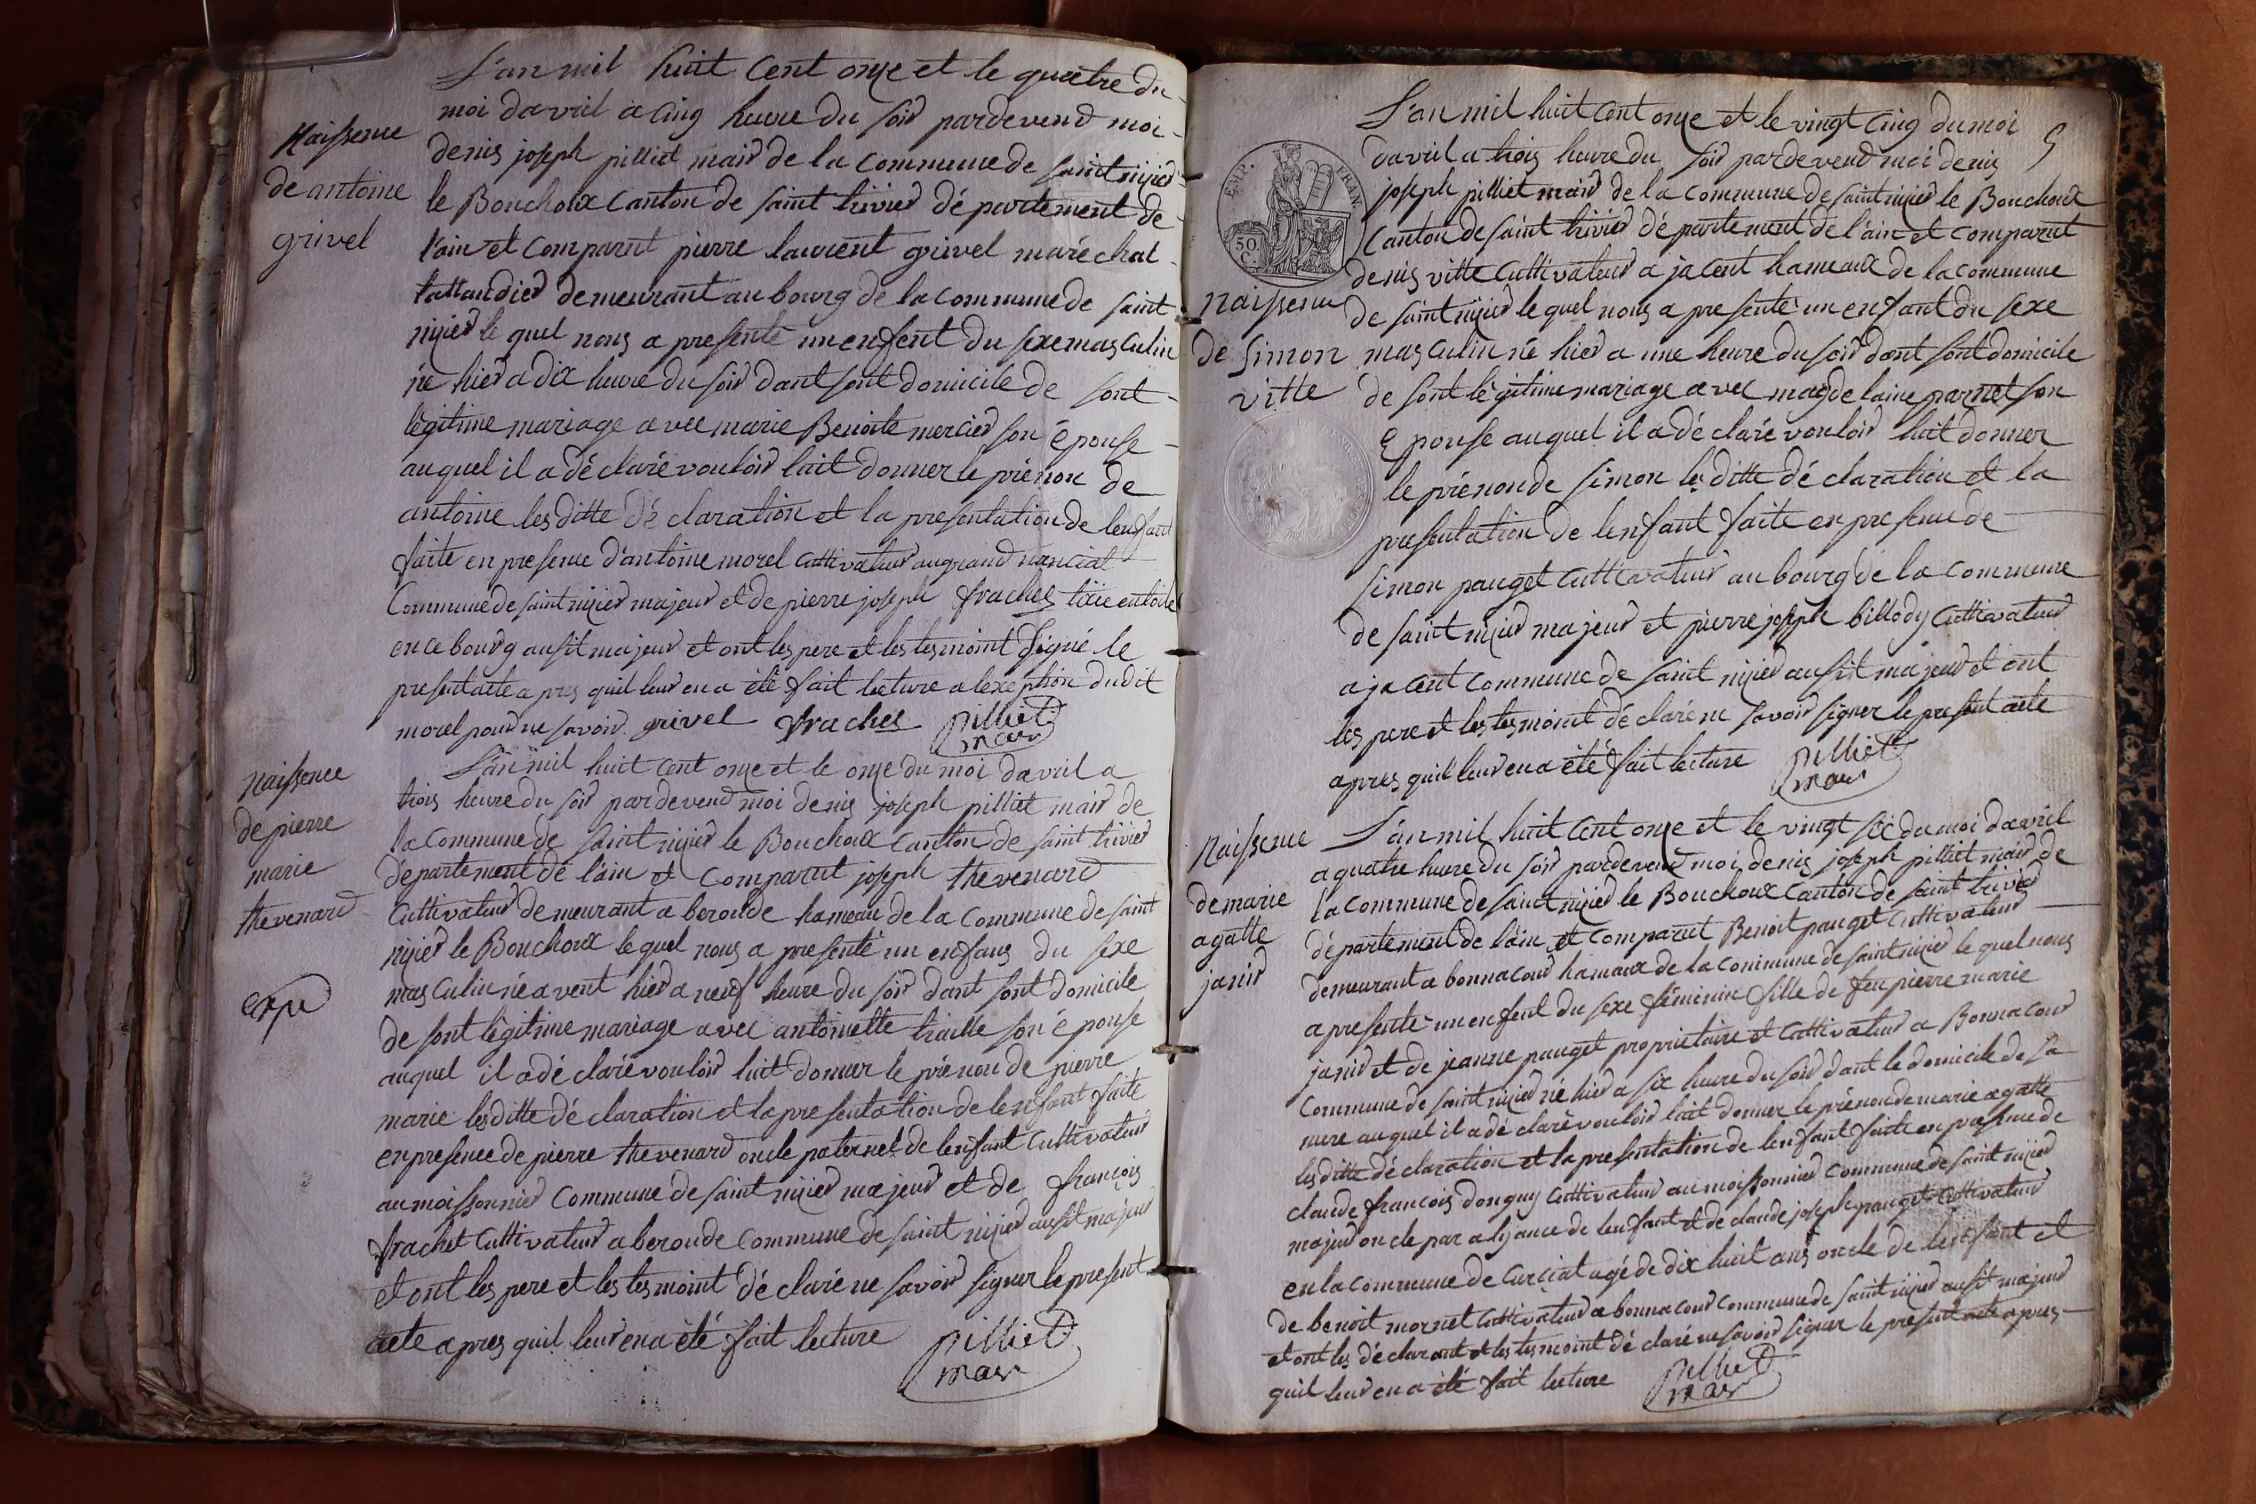 L'an mil huit Cent onze et le quatre du
moi davril a Cinq heure du soir pardevend moi
Naissence
denis joseph pilliet mair de la Commune de saint nizier
de antoine
le Bouchoux Canton de saint trivier département de
grivel
l'ain et Comparut pierre laurent grivel maréchal
taillandier demeurant au bourg de la commune de saint
nizier le quel nous a presenté un enfent du sexe masculin
né hier a dix heure du soir dant sont domicile de sont
légitime mariage avec marie Benoite mercier son épouse
auquel il a déclaré vouloir luit donner le prénon de
antoine les ditte déclaration et la presentation de lenfant
faite en presence d'antoine morel Cultivateur au grand nanciat
Commune de saint nizier majeur et de pierre joseph frachet en toile
en ce bourg ausit majeur et ont les pere et les tesmoint signé le
present acte a pres quil leur en a été fait lecture a lexception dudit
morel pour ne savoir grivel frachet pilliet
mair
L'an mil huit Cent onze et le onze du moi davril a
Naissence
trois heure du soir pardevend moi denis joseph pilliet mair de
de pierre
la Commune de saint nizier le Bouchoux Canton de saint trivier
marie
département de lain et Comparut joseph thevenard
thevenard
Cultivateur demeurant a beronde hameau de la Commune de saint
nizier le Bouchoux le quel nous a presenté un enfans du sexe
masculin né avent hier a neuf heure du soir dant sont domicile
expe
de sont légitime mariage avec antoinette traille son épouse
auquel il a déclaré vouloir luit donner le prénon de pierre
marie les ditte déclaration et la presentation de lenfant faite
en presence de pierre thevenard oncle paternel de lenfant Cultivateur
au moissonnier Commune de saint nizier majeur et de françois
frachet Cultivateur a beronde Commune de saint nizier ausit majeur
et ont les pere et les tesmoint déclaré ne savoir signer le present
acte a pres quil leur en a été fait lecture pilliet
mair
5
L'an mil huit Cent onze et le vingt Cinq du moi
davril a trois heure du soir pardevend moi denis
joseph pilliet mair de la Commune de saint nizier le Bouchoux
Canton de saint trivier département de l'ain et Comparut
EMP. FRAN.
50 C.
denis vitte Cultivateur a jacent hameaux de la commune
Naissence
de saint nizier le quel nous a presenté un enfant du sexe
de Simon
masculin né hier a une heure du soir dant sont domicile
vitte
de sont légitime mariage avec magdelaine parnet son
épouse auquel il a déclaré vouloir luit donner
le prénon de Simon les ditte déclaration et la
presentation de lenfant faite en presence de
Simon pauget Cultivateur au bourg de la Commune
de saint nizier majeur et pierre joseph billody Cultivateur
a jacent commune de saint nizier ausit majeur et ont
les pere et les tesmoint déclaré ne savoir signer le present acte
apres quil leur en a été fait lecture pilliet
mair
Naissence
L'an mil huit Cent onze et le vingt six du moi davril
a quatre heure du soir pardevend moi denis joseph pilliet mair de
de marie
la Commune de saint nizier le Bouchoux Canton de saint trivier
agatte
département de lain et Comparut Benoit pauget Cultivateur
janid
demeurant a bonnacour hamaux de la Commune de saint nizier le quel nous
a presenté un enfent du sexe féminin fille de feu pierre marie
janid et de jeanne pauget propriétaire et Cultivateur a Bonnacour
Commune de saint nizier né hier a six heure du soir dant le domicile de sa
mere auquel il a déclaré vouloir luit donner le prénon de marie agatte
les ditte déclaration et la presentation de lenfant faite en presence de
claude françois donguy Cultivateur au moissonnier Commune de saint nizier
majeur oncle par alyance de lenfant et de claude joseph pauget Cultivateur
en la commune de Curciat agé de dix huit ans oncle de lenfant et
de benoit mornet Cultivateur a bonnacour commune de saint nizier ausit majeur
et ont les déclarant et les tesmoint déclaré ne savoir signer le present acte apres
quil leur en a été fait lecture pilliet
mair